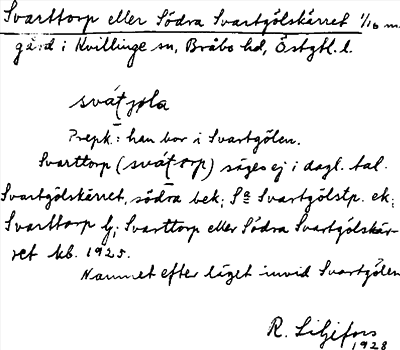 Svarttorp eller Södra Svartgölskärret 1/16 m.
gård i Kvillinge sn, Bråbo hd, Östgtl. l.
svátjöla
Prepk.: han bor i Svartgölen.
Svarttorp (svátorp) säges ej i dagl. tal.
Svartgölskärret, södra bek; Sa Svartgölstp. ek;
Svarttorp Gj; Svarttorp eller Södra Svartgölskär-
ret kb. 1925.
Namnet efter läget invid Svartgölen
R. Liljefors
1928